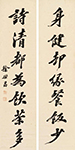 身健卻緣餐飯少
詩清都為飲茶多
徐世昌